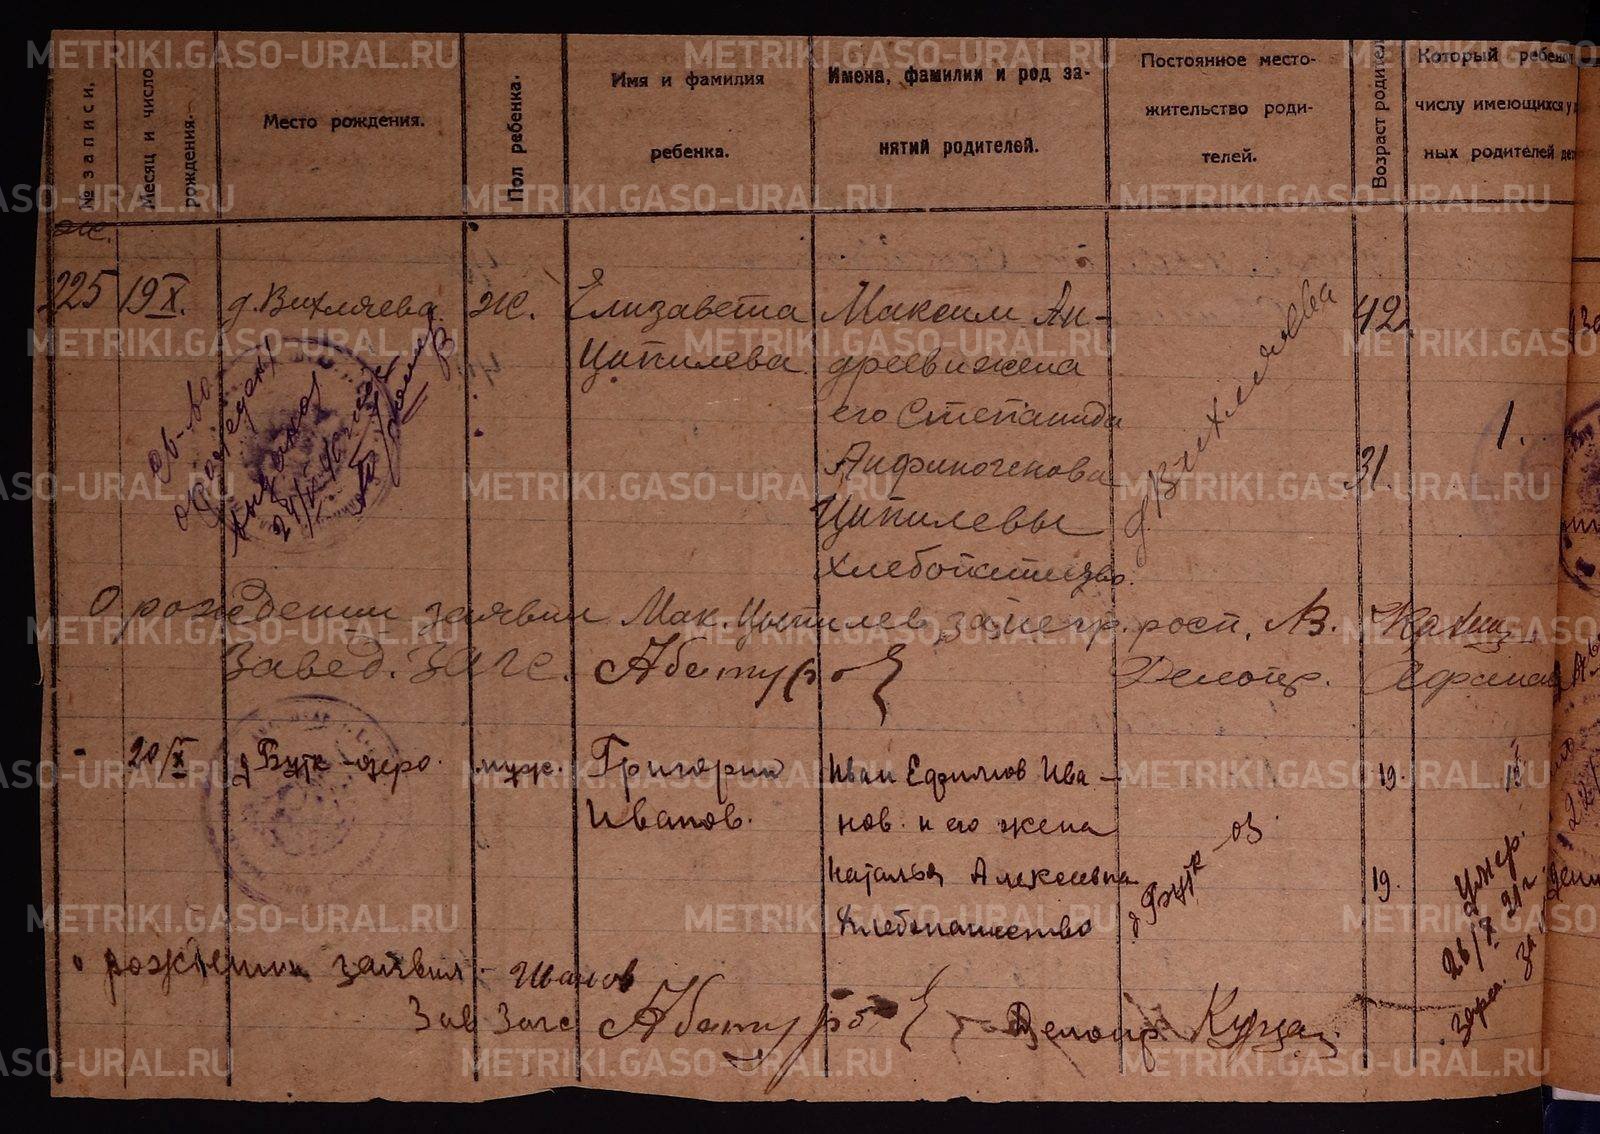 METRIKI.GASO-URAL.RU
№ записи.
Месяц и число
рождения.
Место рождения.
Пол ребенка.
Имя и фамилия
ребенка.
Имена, фамилии и род за-
нятий родителей.
Постоянное место-
жительство роди-
телей.
Возраст родител
Который ребенок
числу имеющихся у
ных родителей дет
225
19/X.
д. Вихляева.
Ж.
Елизавета
Цыпилева.
Максим Ан-
дреев и жена
его Степанида
Анфиногенова
Цыпилевы
хлебопашество.
д. Вихляева
42
31.
1.
О рождении заявил Мак. Цыпилев, за негр. росп. Ав.
Завед. ЗАГС.
Делопр.
20/X
д. Бутк-озеро.
муж.
Григорий
Иванов.
Иван Ефимов Ива-
нов и его жена
Наталья Алексеевна
Хлебопашество
д. Бутк-оз
19.
19.
умер.
26/X 21г
о рождении заявил - Иванов
Зав Загс
Делопр.